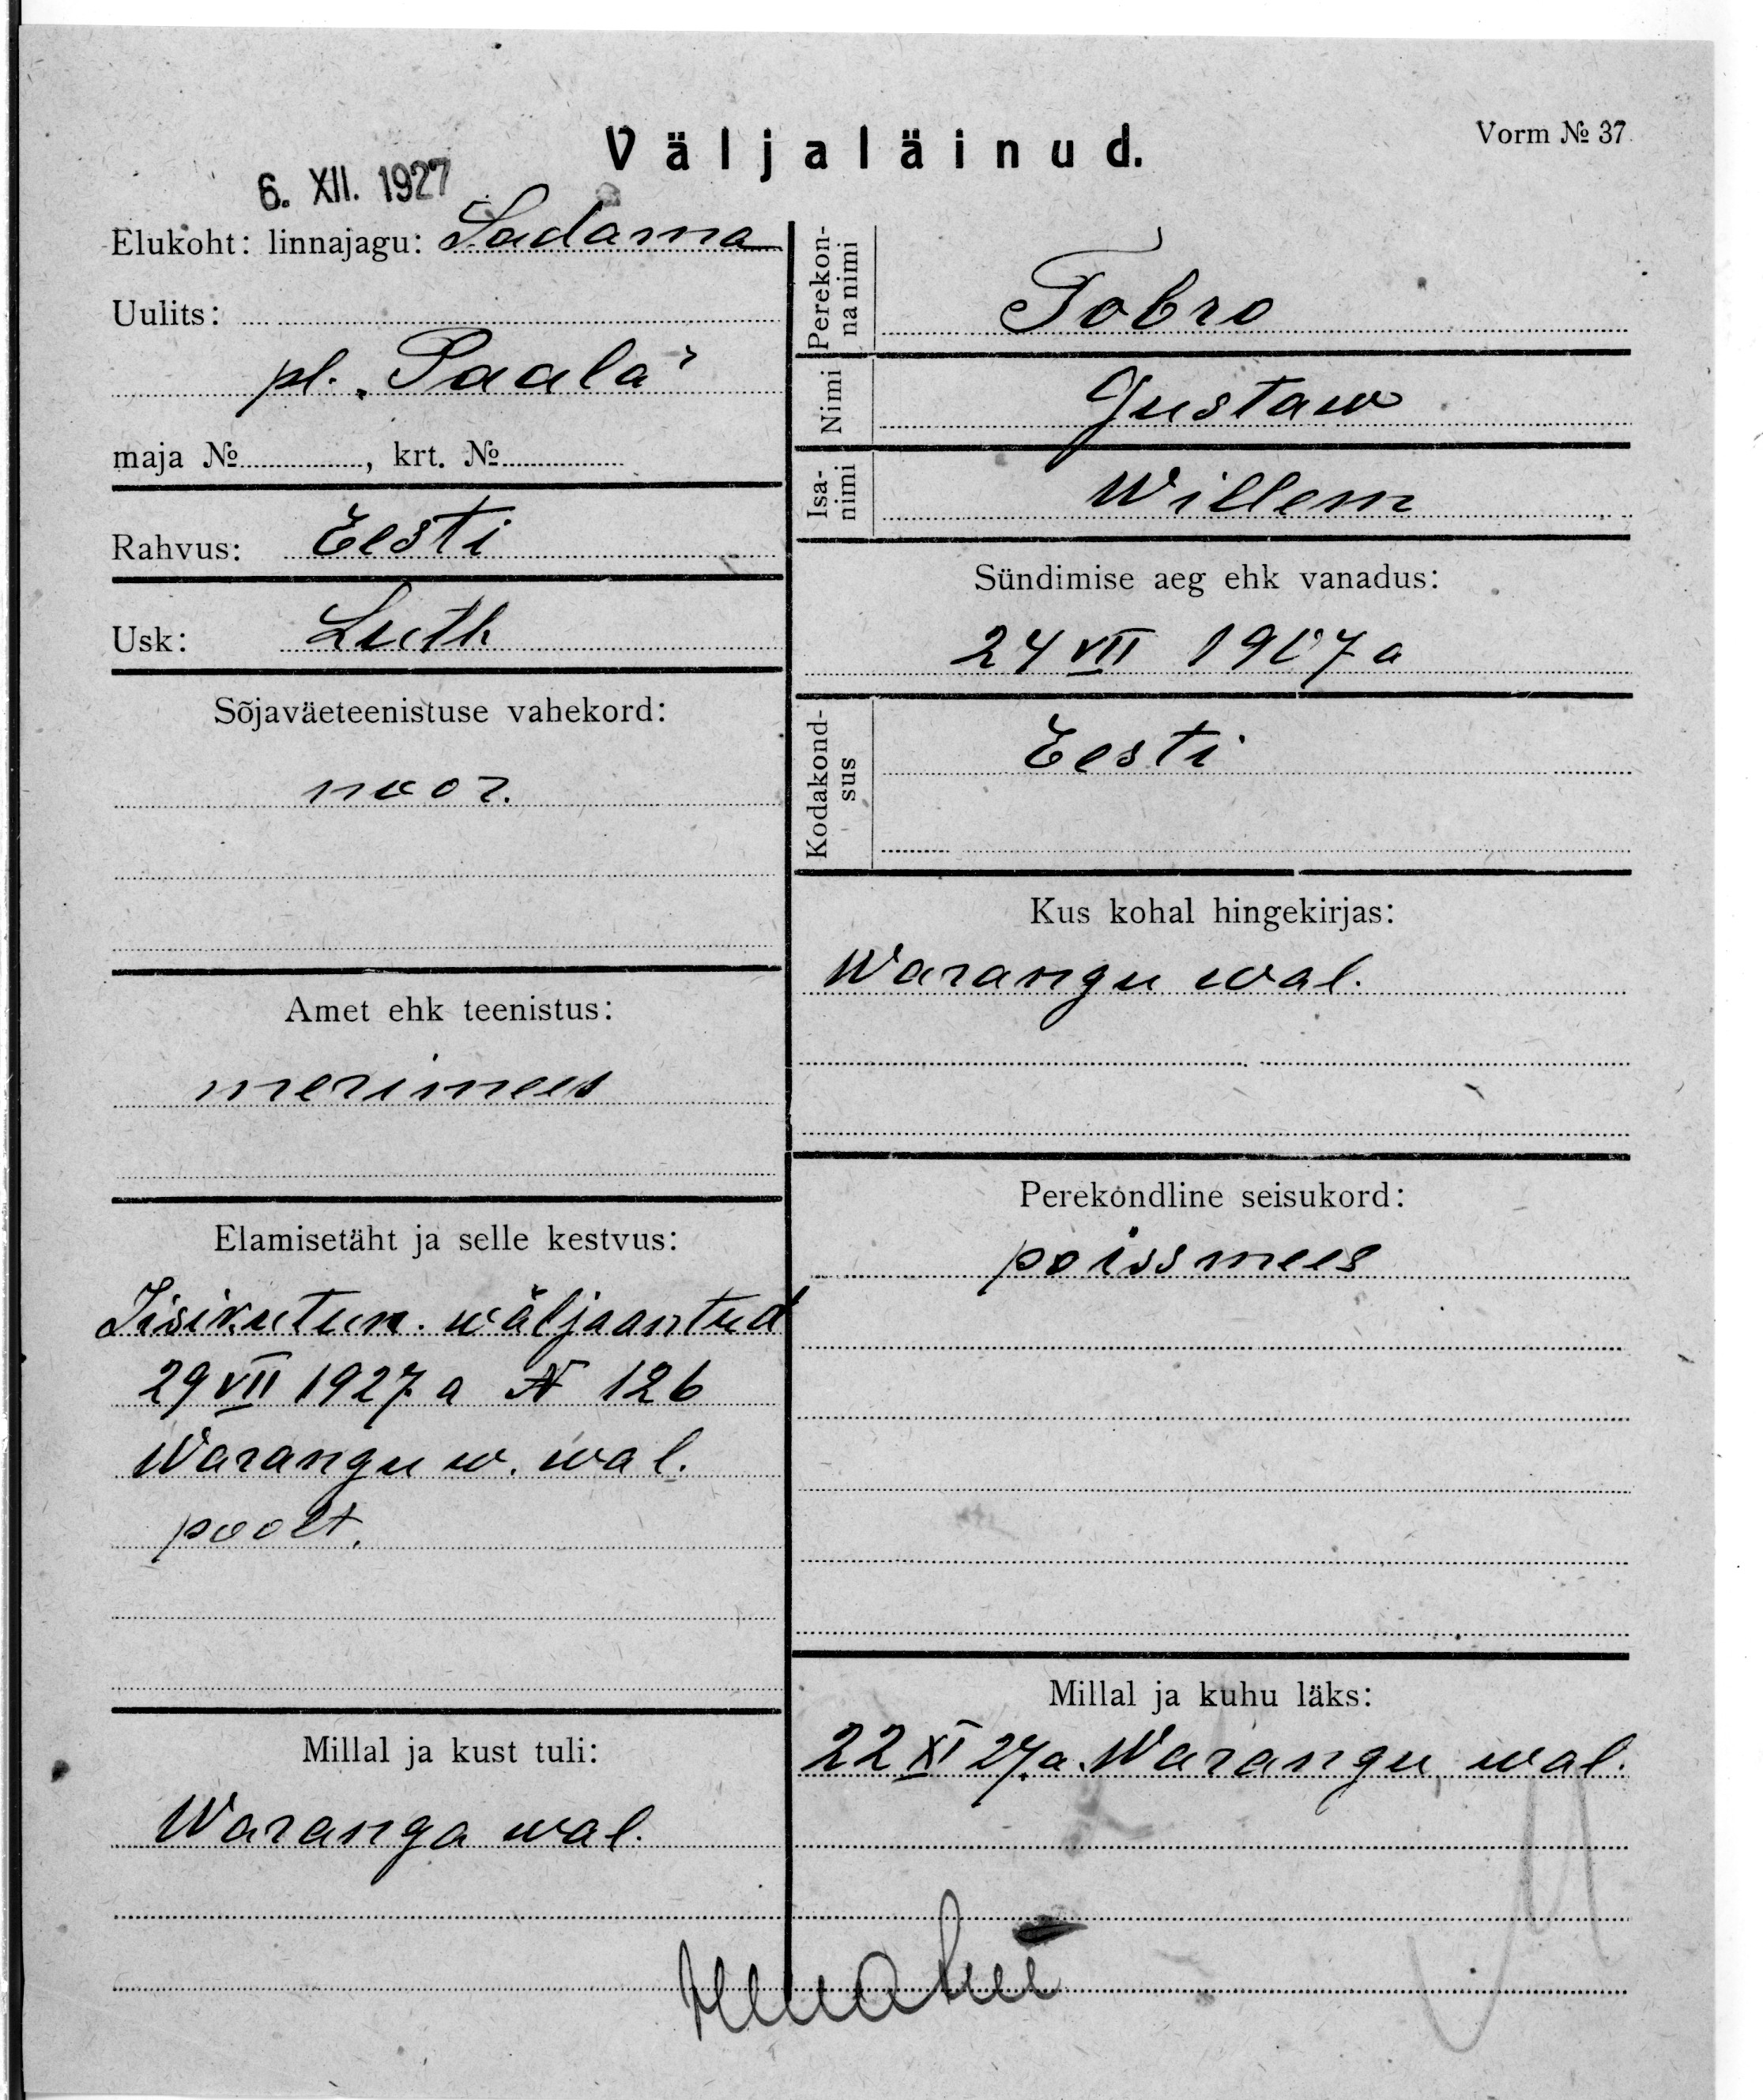 Väljaläinud.
Vorm № 37
6. XII. 1927
Elukoht: linnajagu: Sadama
Uulits:
pl. „Saala"
maja № , krt. №
Rahvus: Eesti
Usk: Luth
Sõjaväeteenistuse vahekord:
noor.
Amet ehk teenistus:
merimees
Elamisetäht ja selle kestvus:
Isikutun. wäljaantud
29 VII 1927 a № 126
Warangu w. wal.
poolt.
Millal ja kust tuli:
Waranga wal.
Perekon-
na nimi
Tobro
Nimi
Gustaw
Isa-
nimi
Willem
Sündimise aeg ehk vanadus:
24 VII 1907 a
Kodakond-
sus
Eesti
Kus kohal hingekirjas:
Warangu wal.
Perekondline seisukord:
poissmees
Millal ja kuhu läks:
22 XI 27.a. Warangu wal.